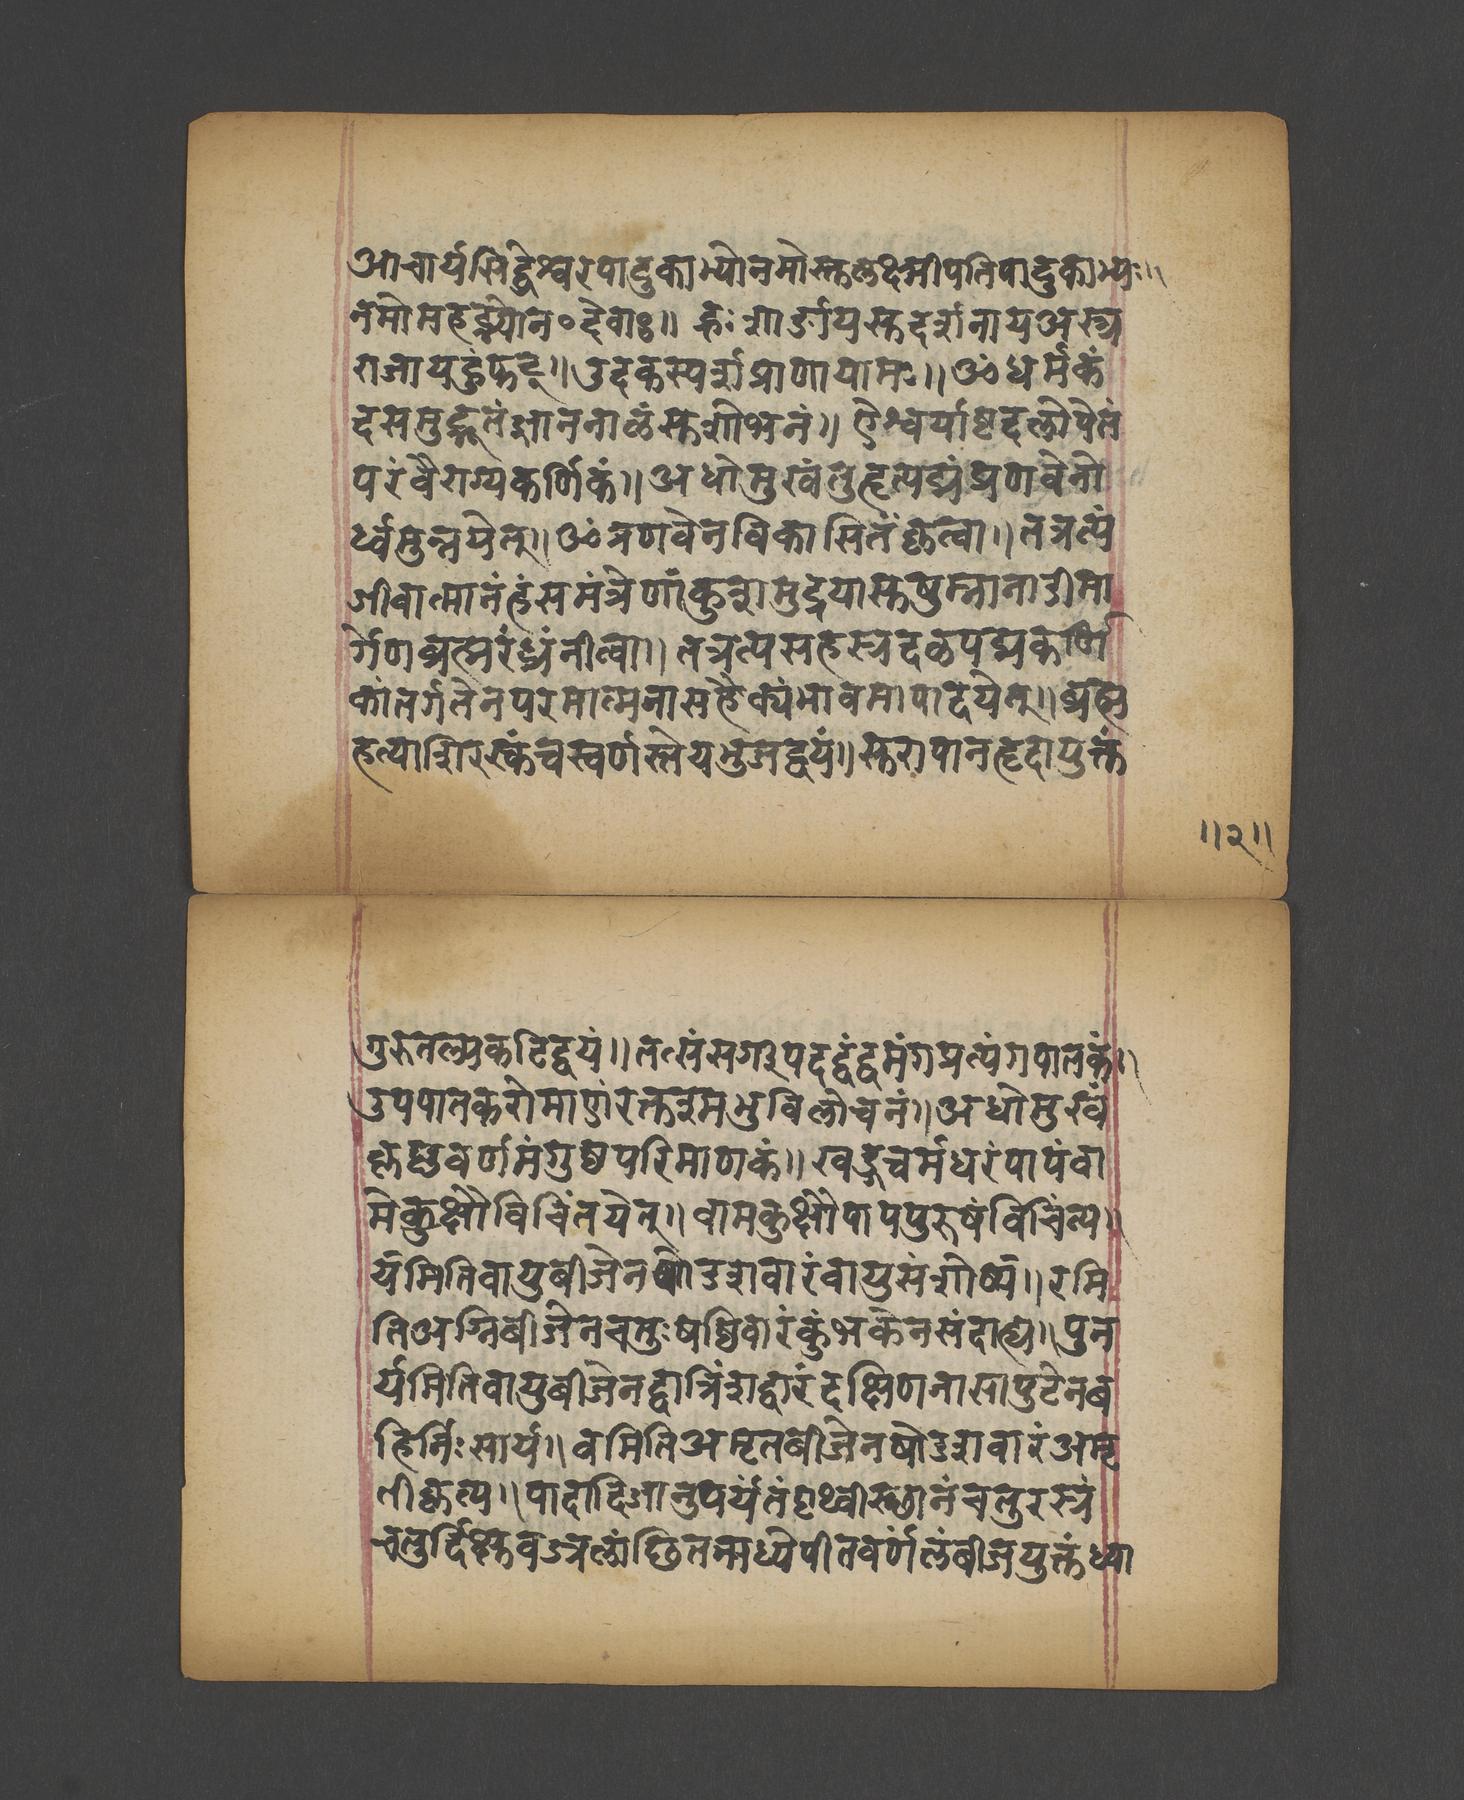 आचार्यसिद्धेश्वरपादुकाभ्योनमोस्तुलक्ष्मीपतिपादुकाभ्यः॥
नमोमहद्भ्योन०देवाः॥ ह्रः शार्ङ्गायसुदर्शनायअस्त्र
राजायहुंफट्॥उदकस्पर्शप्राणायामः॥ॐधर्मकं
दसमुद्भूतंज्ञाननाळंसुशोभनं॥ ऐश्वर्याष्टदलोपेतं
परंवैराग्यकर्णिकं॥अधोमुखंतुहृत्पद्मंप्रणवेनो
र्ध्वमुन्नयेत्॥ॐप्रणवेनविकासितंकृत्वा॥तत्रत्यं
जीवात्मानंहंसमंत्रेणांकुशमुद्रयासुषुम्नानाडीमा
र्गेणब्रह्मरंध्रंनीत्वा॥ तत्रत्यसहस्रदळपद्मकर्णि
कांतर्गतेनपरमात्मनासहैक्यंभावमापादयेत्॥ब्रह्म
हत्याशिरस्कंचस्वर्णस्तेयभुजद्वयं॥सुरापानहृदायुक्तं
॥२॥
गुरुतल्पकटिद्वयं॥तत्संसर्गपदद्वंद्वमंगप्रत्यंगपातकं॥
उपपातकरोमाणंरक्तश्मश्रुविलोचनं॥अधोमुखं
कृष्णवर्णमंगुष्ठपरिमाणकं॥ खड्गचर्मधरंपापंवा
मेकुक्षौविचिंतयेत्॥ वामकुक्षौपापपुरुषंविचिंत्य॥
यंमितिवायुबीजेनषोडशवारंवायुसंशोष्य॥रमि
तिअग्निबीजेनचतुःषष्ठिवारंकुंभकेनसंदाह्य॥पुन
र्यमितिवायुबीजेनद्वात्रिंशद्वारंदक्षिणनासापुटेनब
हिर्निःसार्य॥ वमितिअमृतबीजेनषोडशवारंअमृ
तीकृत्य॥पादादिजानुपर्यंतंपृथ्वीस्थानंचतुरस्रं
चतुर्दिक्षुवज्रलांछितंमध्येपीतवर्णंलंबीजयुक्तंध्या